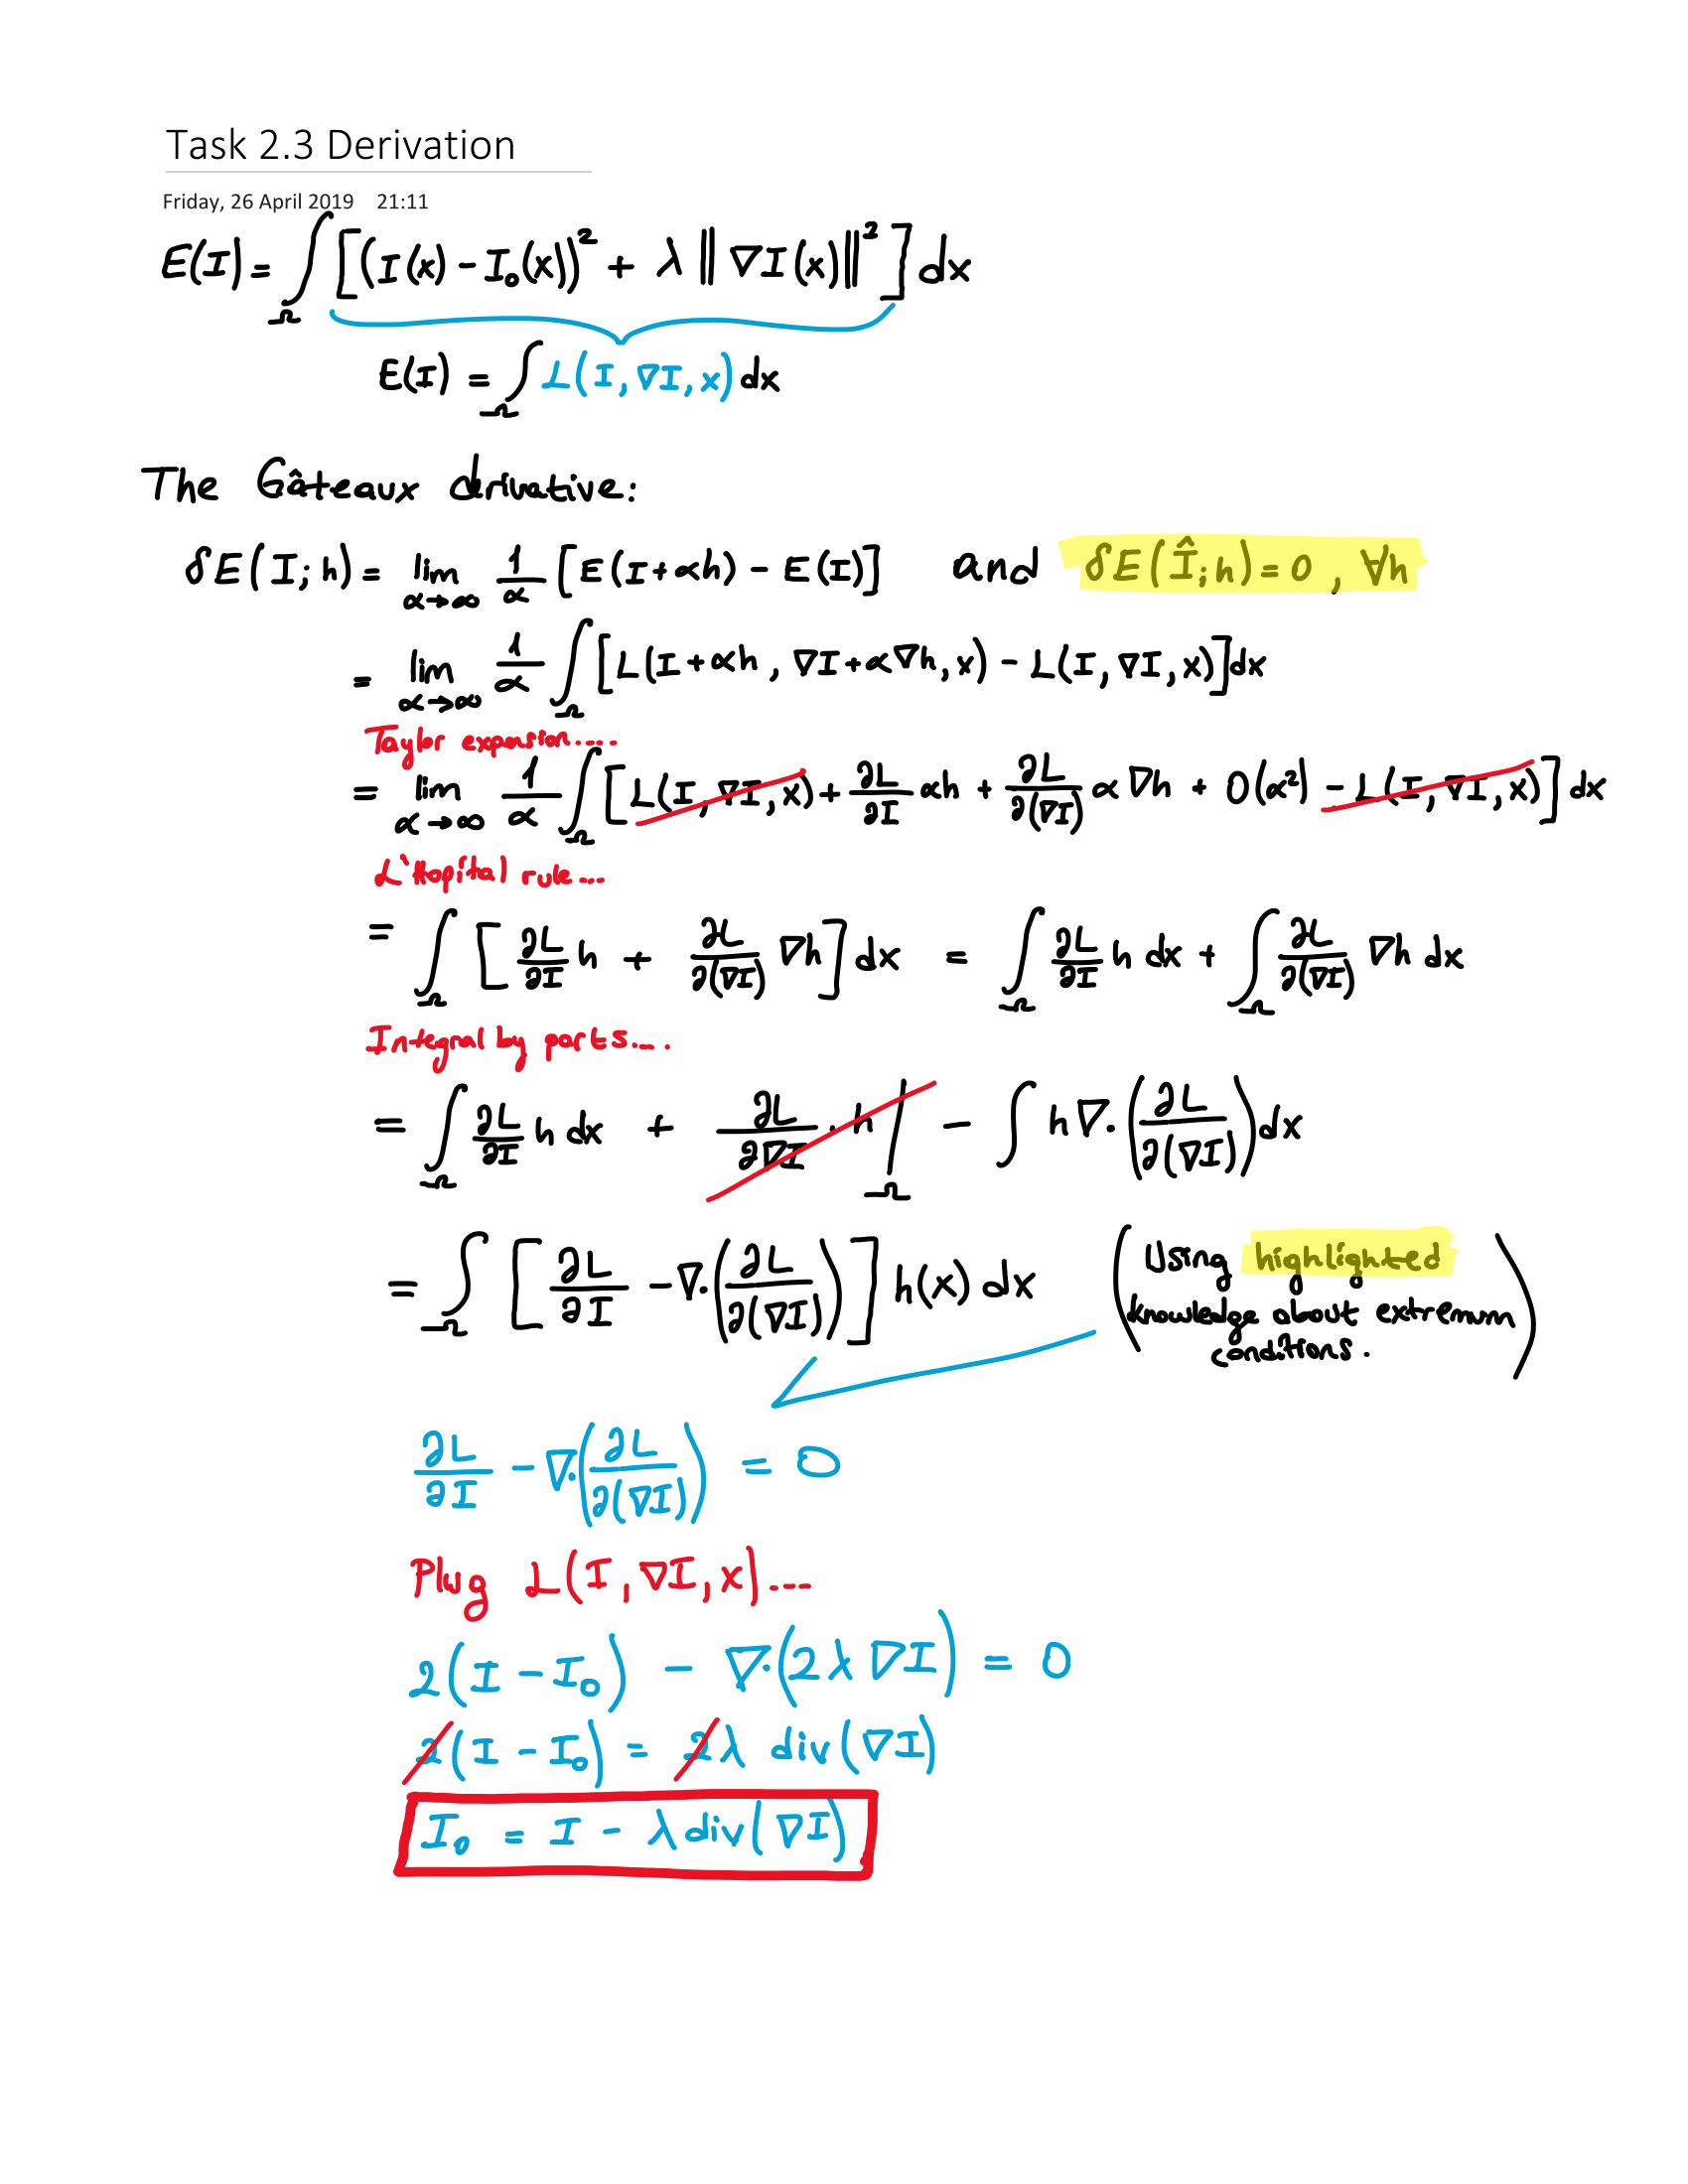 Task 2.3 Derivation
Friday, 26 April 2019 21:11
E(I) = ∫_Ω [(I(x) - I₀(x))² + λ ‖∇I(x)‖²] dx
E(I) = ∫_Ω L(I, ∇I, x) dx
The Gâteaux derivative:
δE(I; h) = lim_{α→∞} 1/α [E(I+αh) - E(I)] and δE(Î; h) = 0, ∀h
= lim_{α→∞} 1/α ∫_Ω [L(I+αh, ∇I+α∇h, x) - L(I, ∇I, x)] dx
Taylor expansion....
= lim_{α→∞} 1/α ∫_Ω [L(I, ∇I, x) + ∂L/∂I αh + ∂L/∂(∇I) α ∇h + O(α²) - L(I, ∇I, x)] dx
L'Hopital rule...
= ∫_Ω [∂L/∂I h + ∂L/∂(∇I) ∇h] dx = ∫_Ω ∂L/∂I h dx + ∫_Ω ∂L/∂(∇I) ∇h dx
Integral by parts....
= ∫_Ω ∂L/∂I h dx + ∂L/∂∇I · h |_Ω - ∫ h ∇·(∂L/∂(∇I)) dx
= ∫_Ω [∂L/∂I - ∇·(∂L/∂(∇I))] h(x) dx
(Using highlighted
knowledge about extremum
conditions.)
∂L/∂I - ∇·(∂L/∂(∇I)) = 0
Plug L(I, ∇I, x)...
2(I - I₀) - ∇·(2λ∇I) = 0
2(I - I₀) = 2λ div(∇I)
I₀ = I - λ div(∇I)